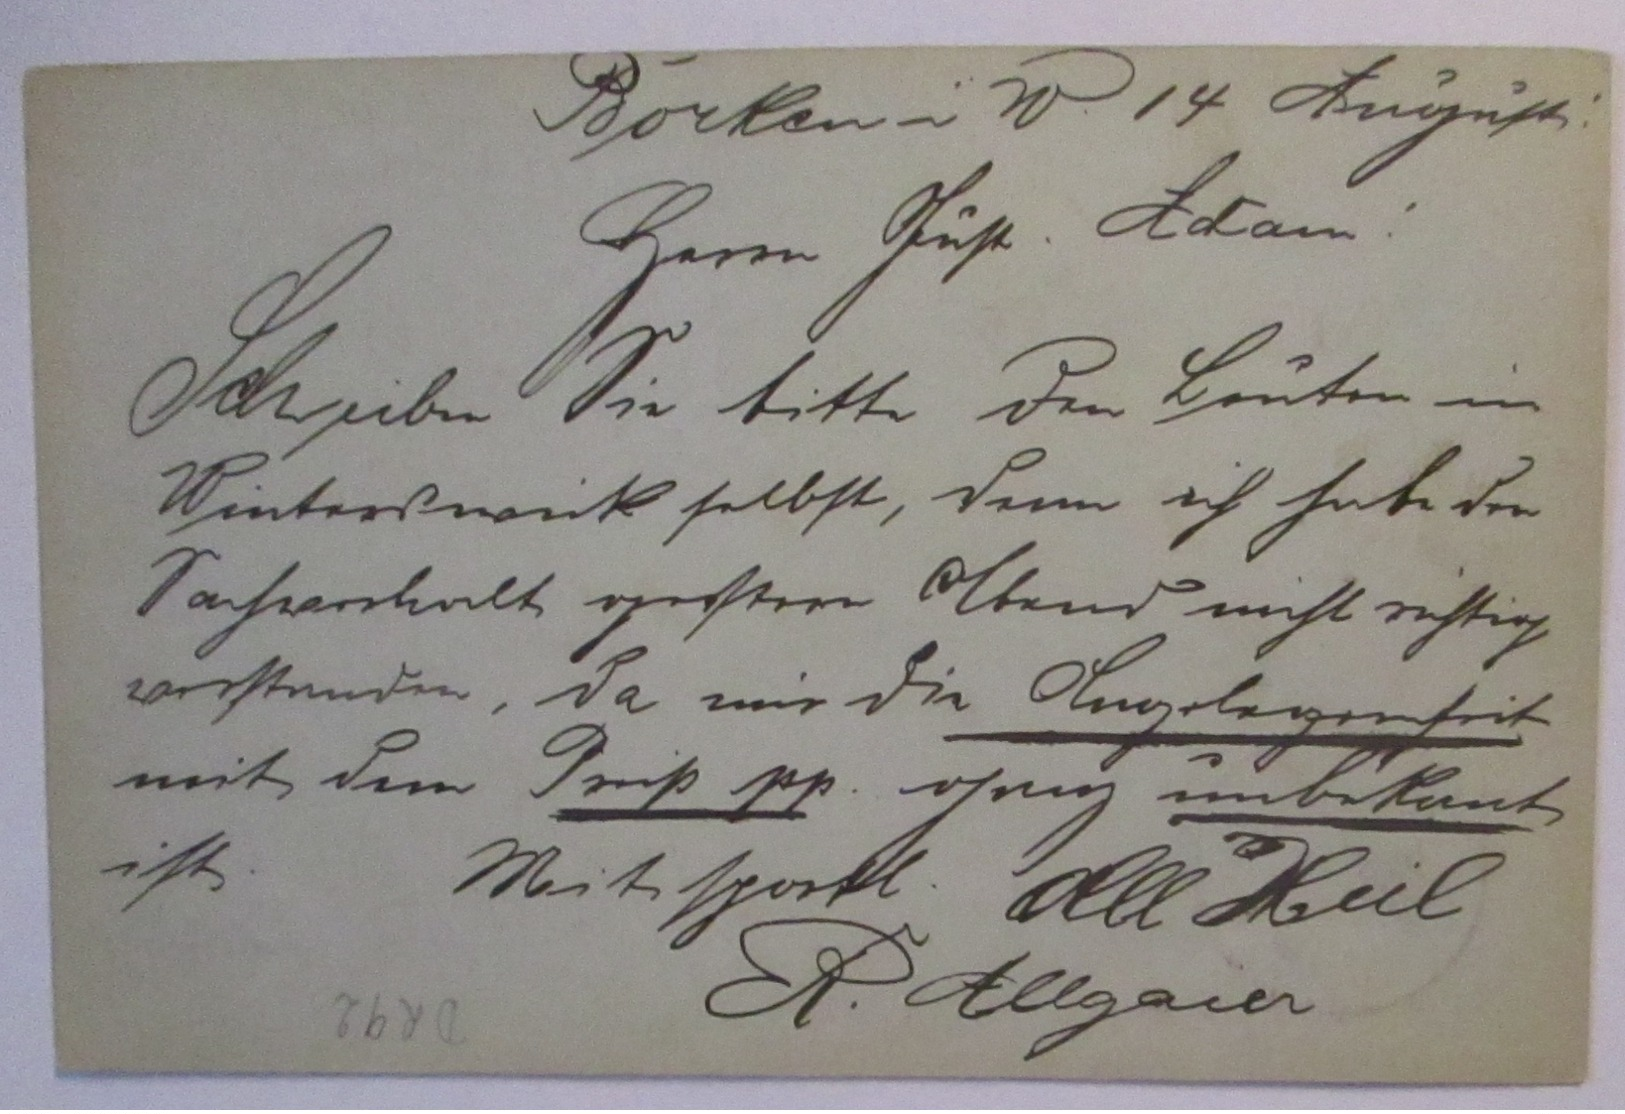 Borken i W. 14 August.
Herrn Just. Adam!
Schreiben Sie bitte den Leuten in
Winterswick selbst, denn ich habe den
Sachverhalt gestern Abend nicht richtig
verstanden, da mir die Angelegenheit
mit dem Preiß pp. ganz unbekant
ist. Mit sportl. All Heil
R. Allgaier
DR92